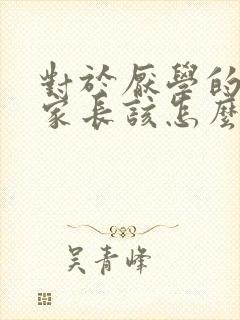 對於厭學的
家長該怎麼
吳青峰